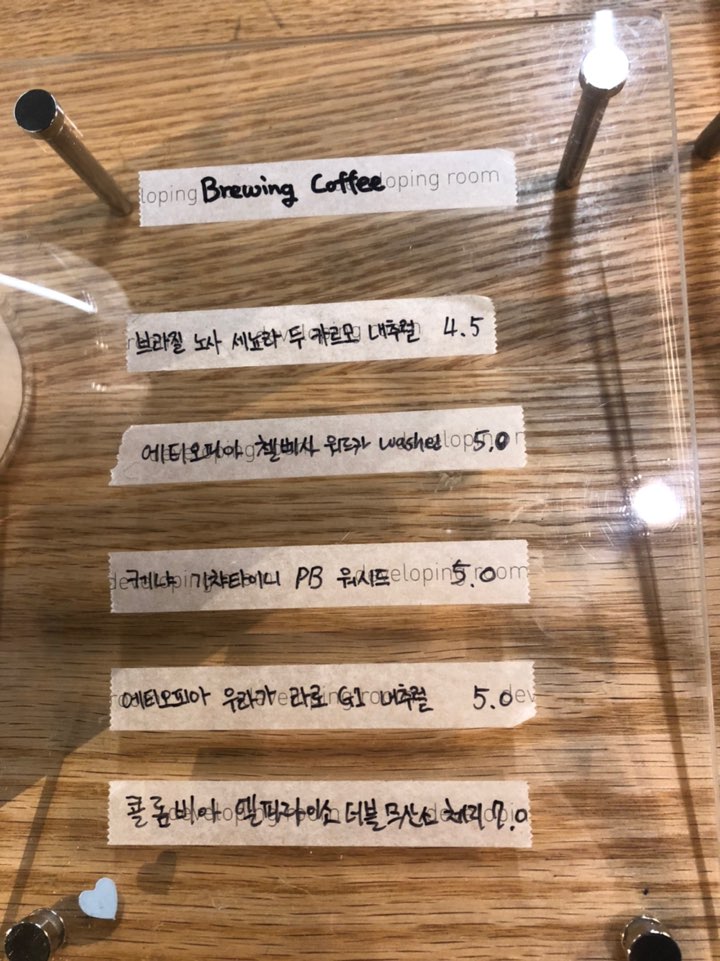 Brewing Coffee
브라질 노사 세뇨라 두 카르모 내추럴 4.5
에티오피아 첼베사 워드카 washed 5.0
케냐 기챠타이니 PB 워시드 5.0
에티오피아 우라가 라로 G1 내추럴 5.0
콜롬비아 엘파라이소 더블 무산소 처리 7.0